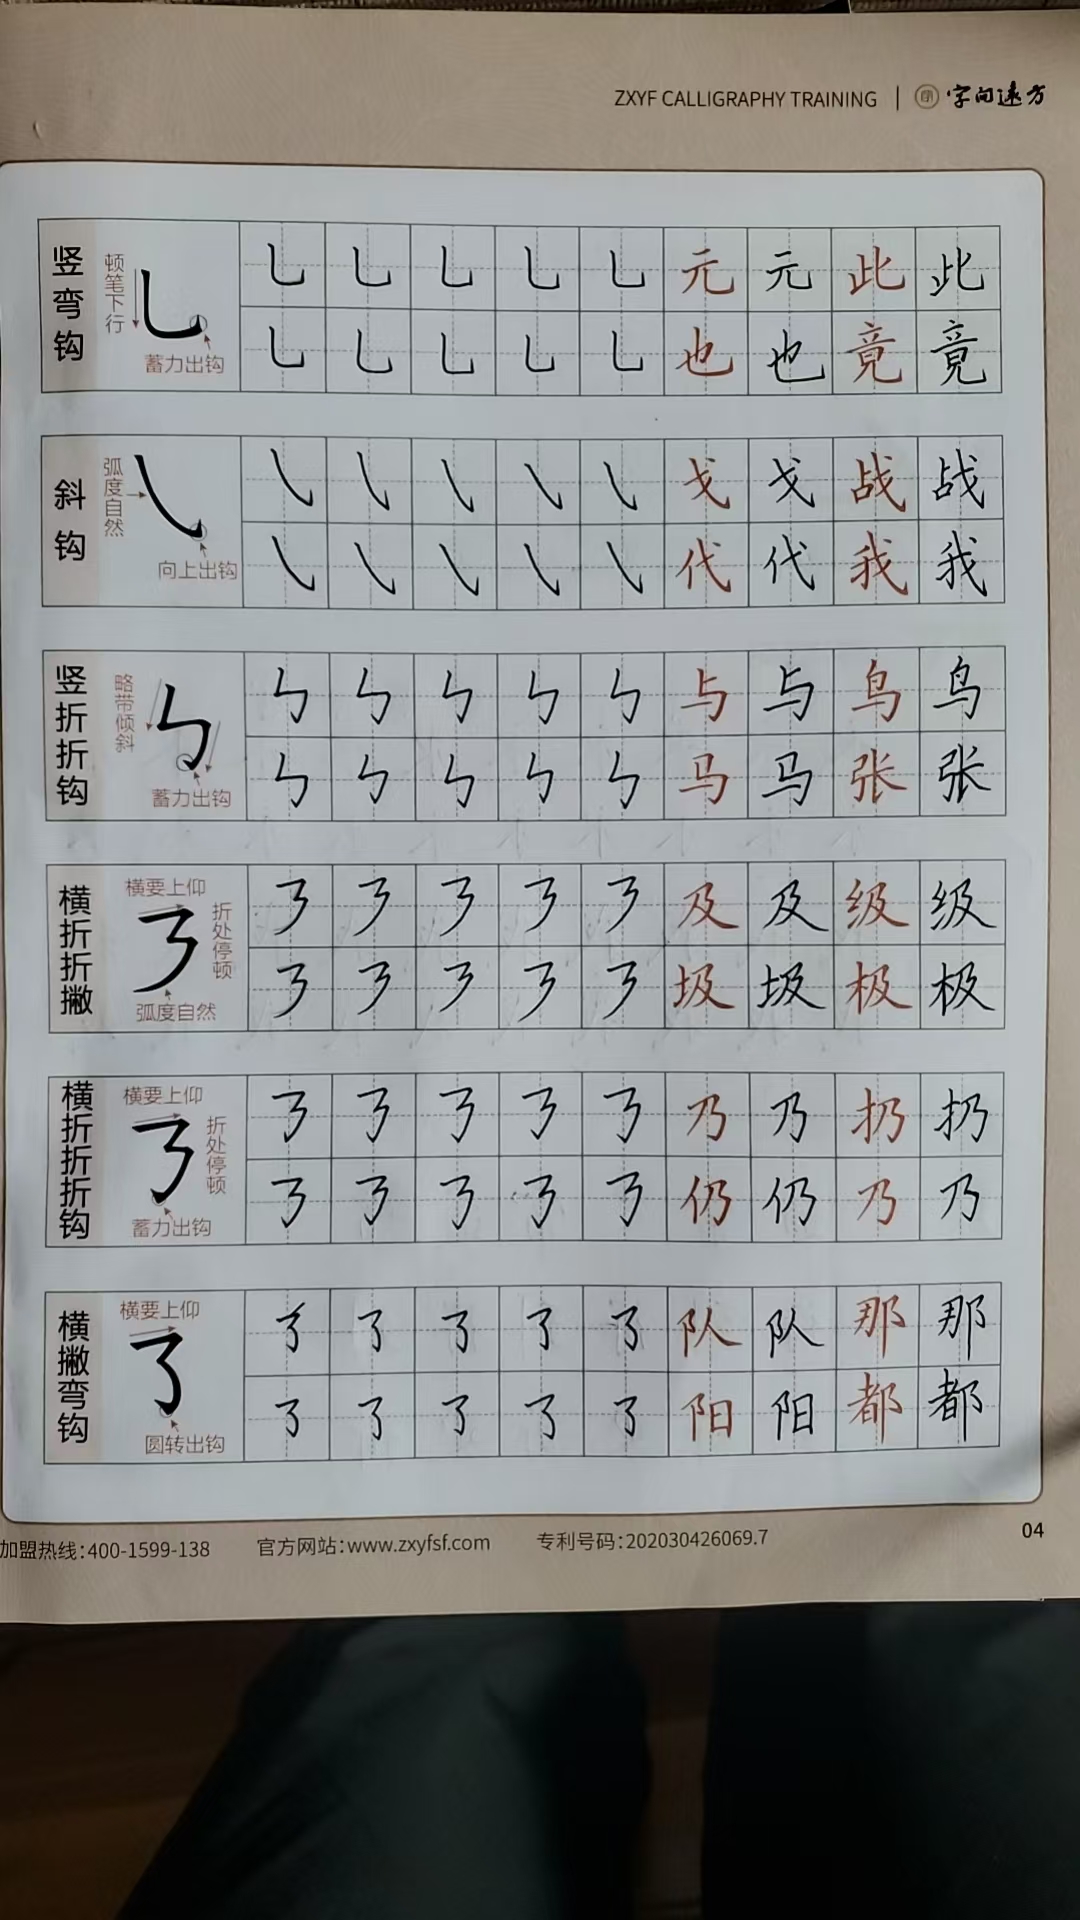 ZXYF CALLIGRAPHY TRAINING | 字间远方
竖弯钩
顿笔下行
蓄力出钩
元 元 此 此
也 也 竟 竟
斜钩
弧度自然
向上出钩
戈 戈 战 战
代 代 我 我
竖折折钩
略带倾斜
蓄力出钩
与 与 鸟 鸟
马 马 张 张
横折折撇
横要上仰
折处停顿
弧度自然
及 及 级 级
圾 圾 极 极
横折折折钩
横要上仰
折处停顿
蓄力出钩
乃 乃 扔 扔
仍 仍 乃 乃
横撇弯钩
横要上仰
圆转出钩
队 队 那 那
阳 阳 都 都
加盟热线:400-1599-138 官方网站:www.zxyfsf.com 专利号码:202030426069.7
04